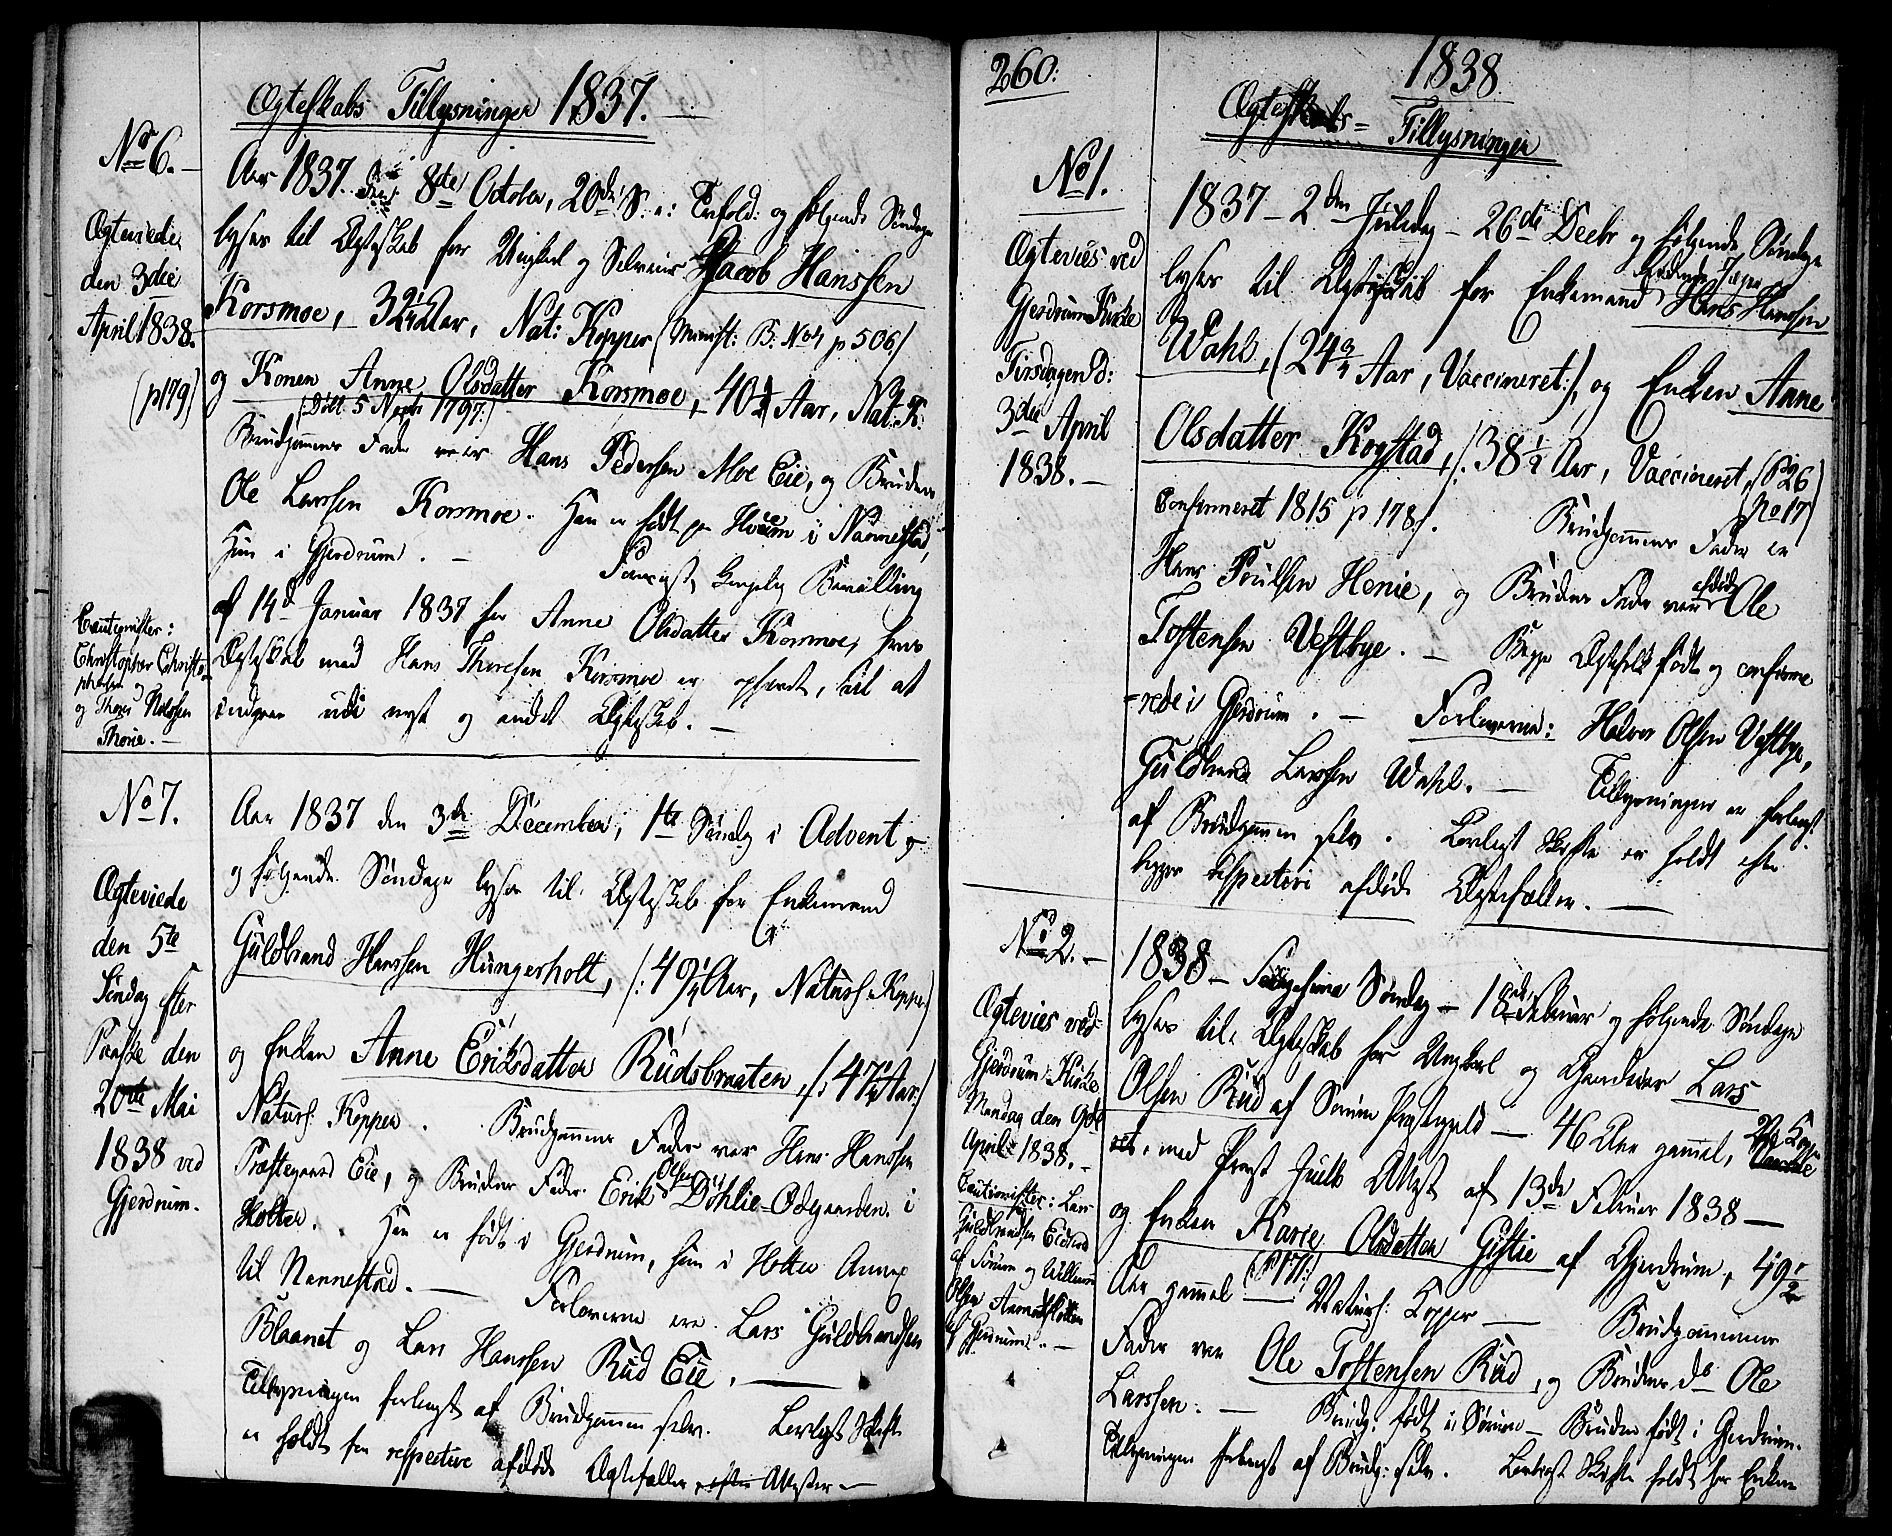 Ægteskabs Tillysninger 1837.
No 6.
Ægteviede
den 3die
April 1838.
(p179)
Aar 1837. den 8de October, 20de S. e: Trefold: og følgende Søndage
lyses til Ægteskab for Ungkarl og Selveier Jacob Hanssen
Korsmoe, Aar, Nat: Kopper (Minist: B: No 4 p 506)
og Konen Anne Olsdatter Korsmoe, 40 Aar, Nat: K:
(Døbt 5 Novbr 1797.)
Brudgommens Fader var Hans Pedersen Moe Eie, og Brudens
Ole Larssen Korsmoe. Han er født paa i Nannestad,
Hun i Gjerdrum. — kongelig Bevilling
af 14d Januar 1837 for Anne Olsdatter Korsmoe, hvis
Ægteskab med Hans Thoresen Korsmoe er ophævet, til at
indgaae udi nyt og andet Ægteskab. —
Cautionister:
Christopher Christo-
phersen
og Thores Nielssen
Thorie. —
No 7.
Ægteviede
den 5te
Søndag efter
Paaske den
20de Mai
1838 ved
Gjerdrum.
Aar 1837 den 3de December, 1te Søndag i Advent
og følgende Søndage lyses til Ægteskab for Enkemand
Guldbrand Hanssen Hungerholt, (: 49½ Aar, Naturl: Kopper)
og Enken Anne Eriksdatter Rudsbraaten, (: 47½ Aar:)
Naturl: Kopper. Brudgommens Fader var Hans Hanssen
Præstegaard Eie, og Brudens Fader Erik Olsen Döhlie-Ødegaarden i
Holter. Han er født i Gjerdrum, hun i Holter Annex
til Nannestad. — Forloverne ere Lars Guldbrandsen
Blaanet og Lars Hanssen Rud Eie. —
Tillysningen forlangt af Brudgommen selv. Lovligt Skifte
er holdt for respective afdøde Ægtefæller efter Attester —
260:
1838
Ægteskabs= Tillysninger
No 1.
Ægtevies ved
Gjerdrum Kirke
Tirsdagen d:
3die April
1838. —
1837 — 2den Juledag — 26de Decbr og følgende Søndage
lyses til Ægteskab for Enkemand Hans Hanssen
Wahl, (24¾ Aar, Vaccineret:), og Enken Anne
Olsdatter Kogstad, (: 38½ Aar, Vaccineret, (P 26
No 17)
Confirmeret 1815 p 178). Brudgommens Fader er
Hans Poulsen Henie, og Brudens Fader var afdøde Ole
Tostensen Vestbye. — Begge Ægtefolk født og confirme
=rede i Gjerdrum. — Forloverne: Halvor Olsen Vestbye,
Guldbrand Larssen Wahl. — Tillysningen er forlangt
af Brudgommen selv. Lovligt Skifte er holdt efter
begges respective afdøde Ægtefæller. —
No 2. —
Ægtevies ved
Gjerdrum Kirke
Mandag den 9de
April 1838. —
Cautionister: Lars
Guldbrandsen
af Sørum og
Olsen
af Gjerdrum. —
1838 — Søndag — 18de Februar og følgende Søndage
lyses til Ægteskab for Ungkarl og Gaardeier Lars
Olsen Rud af Sørum Præstegjeld — 46 Aar gammel,
med Præst Attest af 13de Februar 1838 —
og Enken Karie Olsdatter Gistie af Gjerdrum, 49½
Aar gammel (P171:) Naturl: Kopper — Brudgommens
Fader var Ole Tostensen Rud, og Brudens do Ole
Larssen. — Brudg: født i Sørum — Bruden født i Gjerdrum.
Tillysningen forlangt af Brudg: selv. Lovligt Skifte holdt for Enken